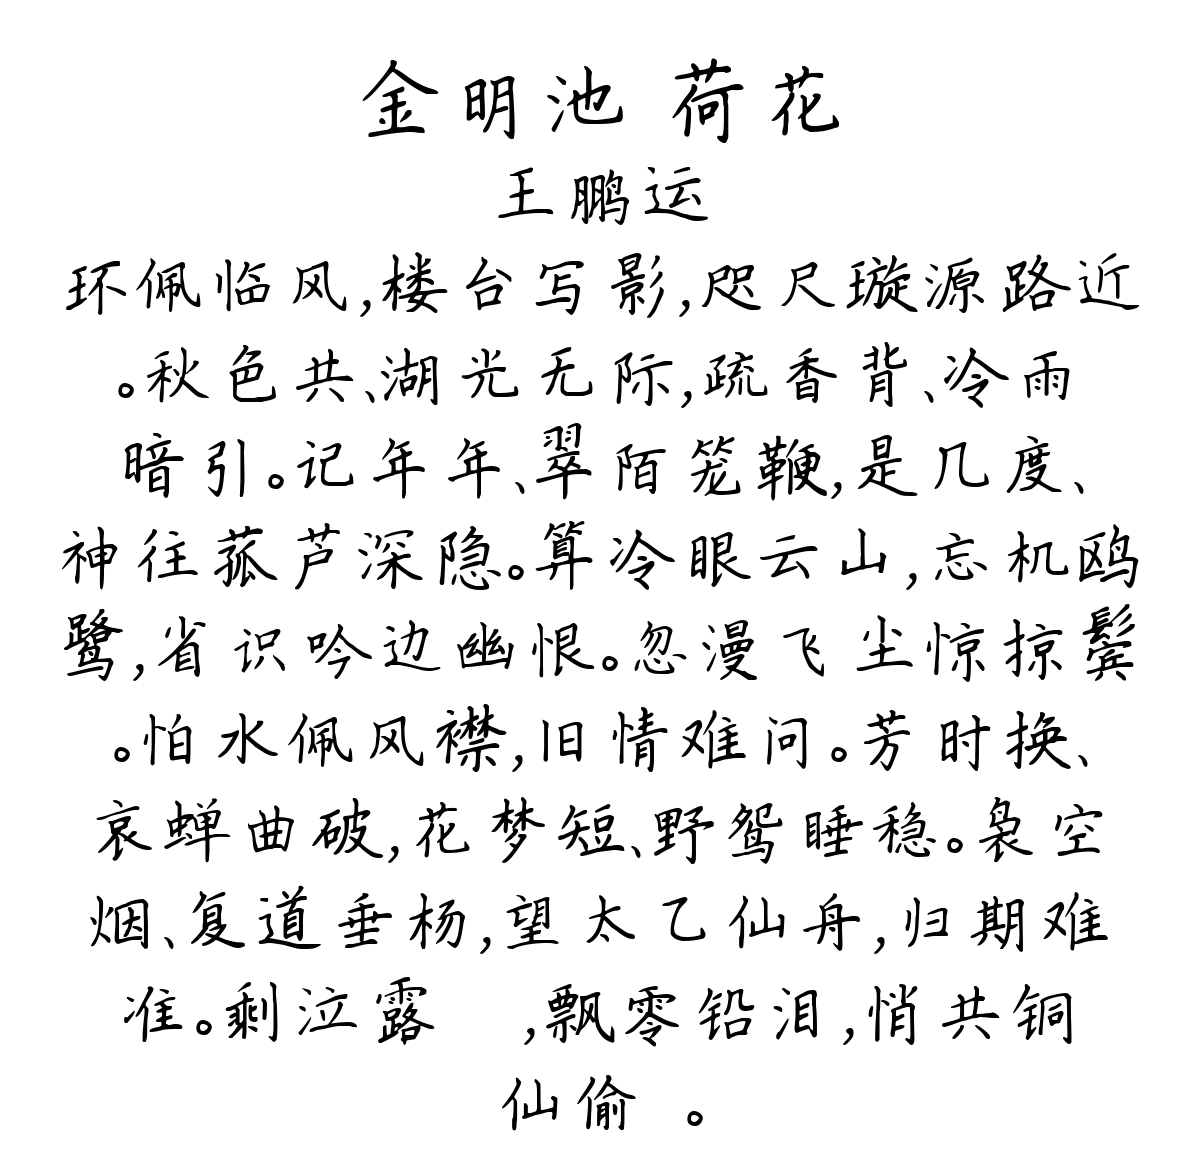 金明池 荷花
王鹏运
环佩临风,楼台写影,咫尺璇源路近
。秋色共、湖光无际,疏香背、冷雨
暗引。记年年、翠陌笼鞭,是几度、
神往菰芦深隐。算冷眼云山,忘机鸥
鹭,省识吟边幽恨。忽漫飞尘惊掠鬓
。怕水佩风襟,旧情难问。芳时换、
哀蝉曲破,花梦短、野鸳睡稳。袅空
烟、复道垂杨,望太乙仙舟,归期难
准。剩泣露 ,飘零铅泪,悄共铜
仙偷 。